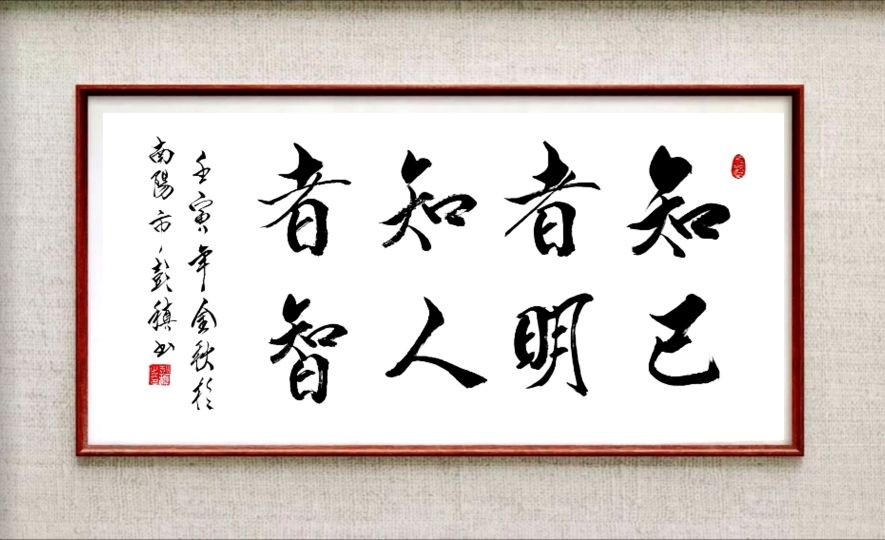 知己
者明
知人
者智
壬寅年金秋於
南陽市彭縝书